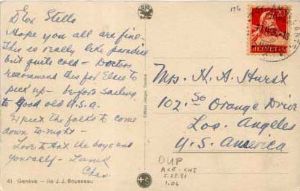 Dear Stella
Hope you all are fine -
This is really like paradise
but quite cold - Doctors
recommend this for Elsie to
pick up - before sailing
to good old U.S.A.
Expect the folks to come
down to-night -
Love to
the boys and
yourself -
41 GENÈVE - Ile J. J. Rousseau
HELVETIA
Mrs. H. A. Hurst
102 So Orange Drive
Los Angeles
U.S. America
OUP